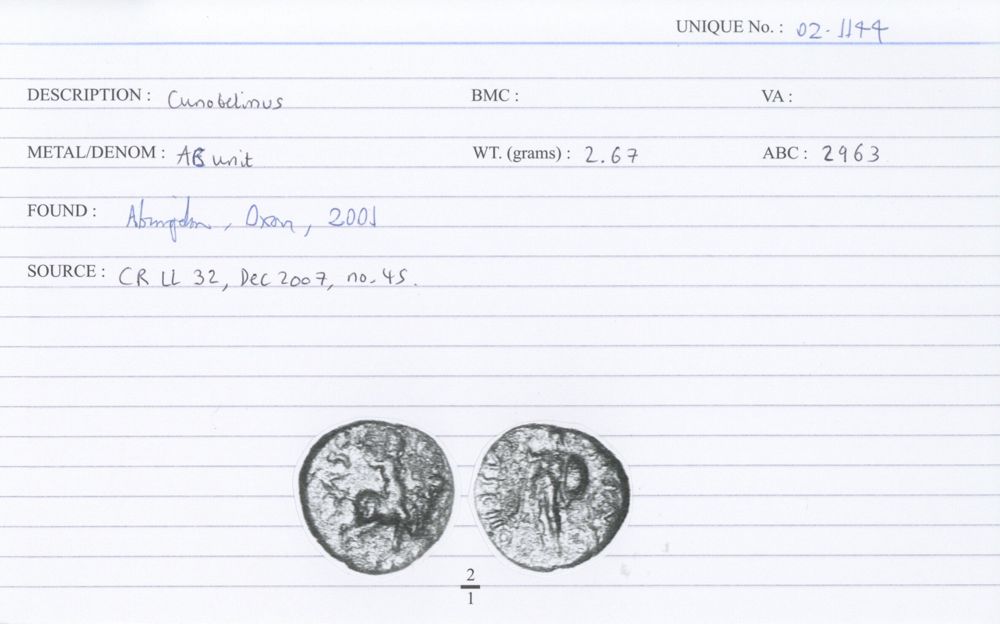 UNIQUE No. : 02.1144
DESCRIPTION : Cunobelinus BMC : VA :
METAL/DENOM : AE unit WT. (grams) : 2.67 ABC : 2963
FOUND : Abingdon, Oxon, 2001
SOURCE : CR LL 32, Dec 2007, no. 45.
2
1